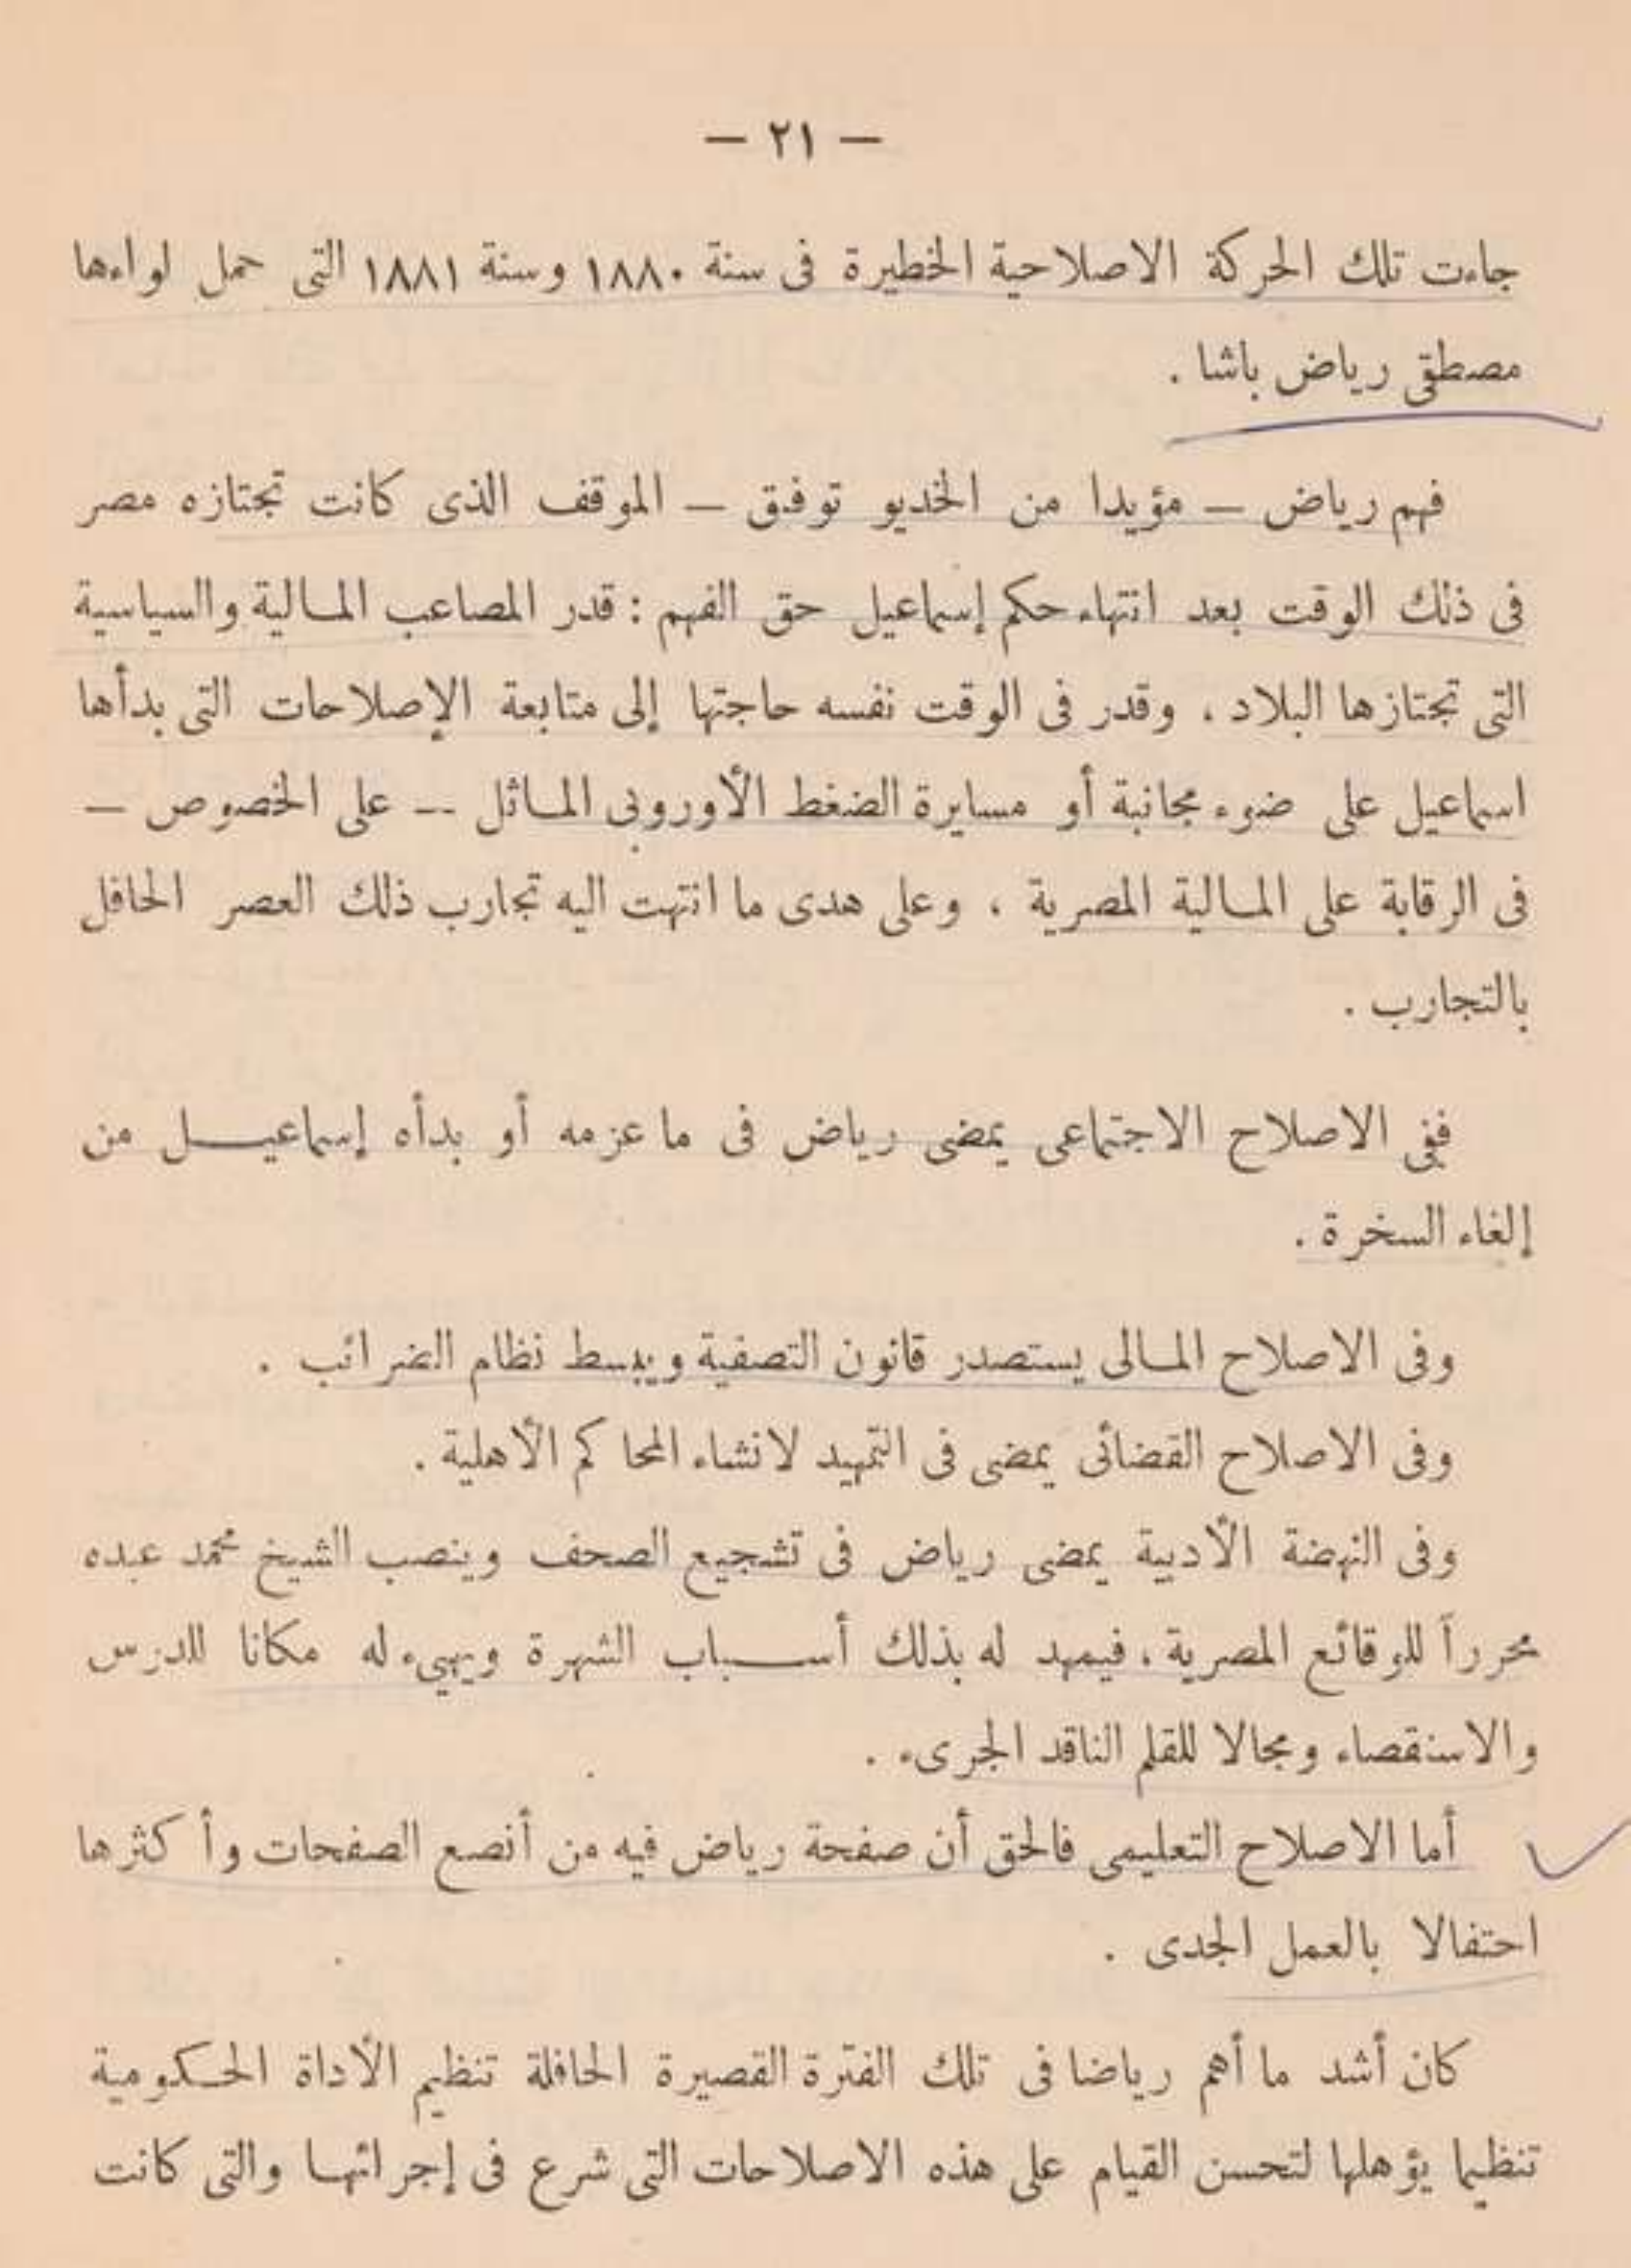 — ٢١ —
جاءت تلك الحركة الاصلاحية الخطيرة فى سنة ١٨٨٠ وسنة ١٨٨١ التى حمل لواءها
مصطفى رياض باشا .
فهم رياض — مؤيدا من الخديو توفيق — الموقف الذى كانت تجتازه مصر
فى ذلك الوقت بعد انتهاء حكم إسماعيل حق الفهم : قدر المصاعب المالية والسياسية
التى تجتازها البلاد ، وقدر فى الوقت نفسه حاجتها إلى متابعة الإصلاحات التى بدأها
اسماعيل على ضوء مجانبة أو مسايرة الضغط الأوروبى الماثل -- على الخصوص —
فى الرقابة على المالية المصرية ، وعلى هدى ما انتهت اليه تجارب ذلك العصر الحافل
بالتجارب .
ففى الاصلاح الاجتماعى يمضى رياض فى ما عزمه أو بدأه إسماعيل من
إلغاء السخرة .
وفى الاصلاح المالى يستصدر قانون التصفية ويبسط نظام الضرائب .
وفى الاصلاح القضائى يمضى فى التمهيد لانشاء المحاكم الأهلية .
وفى النهضة الأدبية يمضى رياض فى تشجيع الصحف وينصب الشيخ محمد عبده
محرراً للوقائع المصرية ، فيمهد له بذلك أسباب الشهرة ويهيء له مكانا للدرس
والاستقصاء ومجالا للقلم الناقد الجرىء .
أما الاصلاح التعليمى فالحق أن صفحة رياض فيه من أنصع الصفحات وأكثرها
احتفالا بالعمل الجدى .
كان أشد ما أهم رياضا فى تلك الفترة القصيرة الحافلة تنظيم الأداة الحكومية
تنظيما يؤهلها لتحسن القيام على هذه الاصلاحات التى شرع فى إجرائها والتى كانت